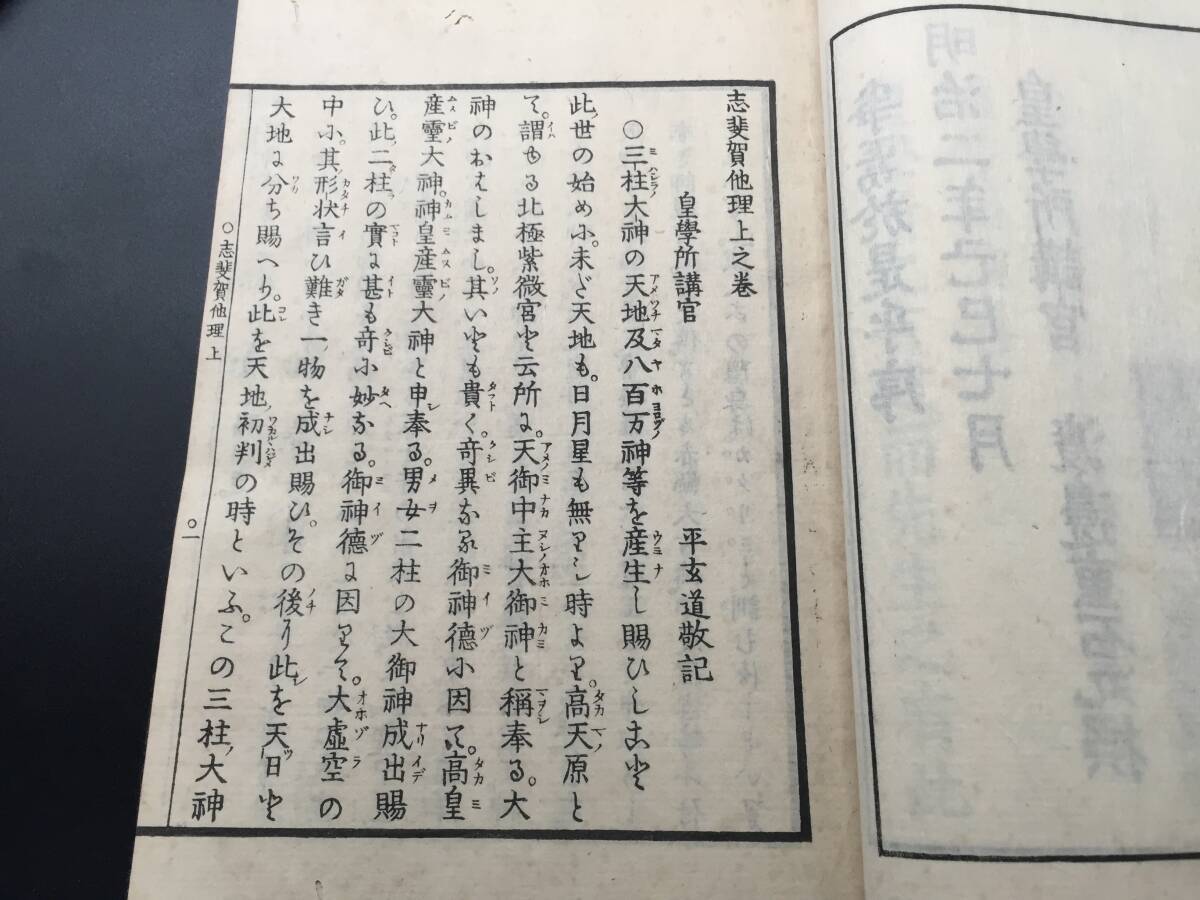 志斐賀他理上之卷
皇學所講官　平玄道敬記
○三柱大神の天地及八百万神等を産生し賜ひしこと
此世の始めに。未だ天地も。日月星も無りし時より。高天原と
て。謂ゆる北極紫微宮と云所に。天御中主大御神と稱奉る。大
神のおはしまし。其いとも貴く。奇異なる御神德に因て。高皇
産靈大神。神皇産靈大神と申奉る。男女二柱の大御神成出賜
ひ。此二柱の實に甚も奇に妙なる。御神德に因りて。大虚空の
中に。其形状言ひ難き一物を成出賜ひ。その後り此を天日と
大地に分ち賜へり。此を天地ノ初判の時といふ。この三柱ノ大神
○志斐賀他理 上
○一
明治二年己巳七月
皇學所講官